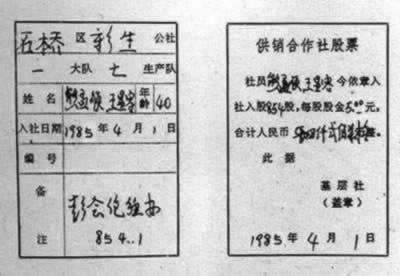 石桥 区 新生 公社
一 大队 七 生产队
姓名 熊孟 王 年龄 40
入社日期 1985年4月1日
编号
备注 彭会 经办
85 4..1
供销合作社股票
社员 熊孟 王 今依章入
社入股854股，每股股金5.00元，
合计人民币 仟贰佰 整。
此据
基层社
（盖章）
1985年4月1日